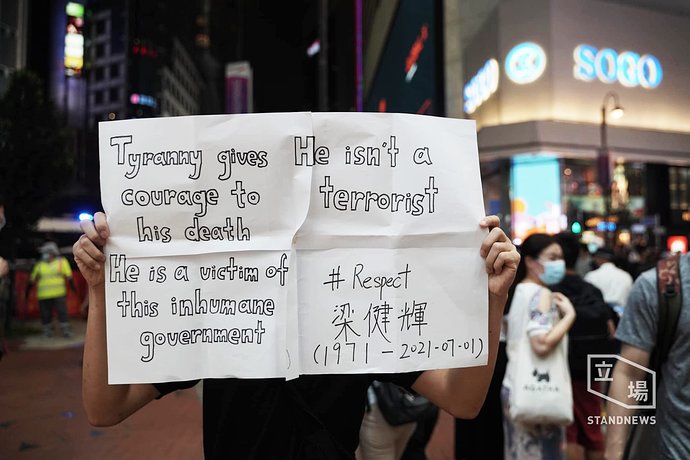 Tyranny gives
courage to
his death
He is a victim of
this inhumane
government
He isn't a
terrorist
# Respect
梁健輝
(1971 - 2021-07-01)
SOGO
SOGO
AGATHA
立場
STANDNEWS